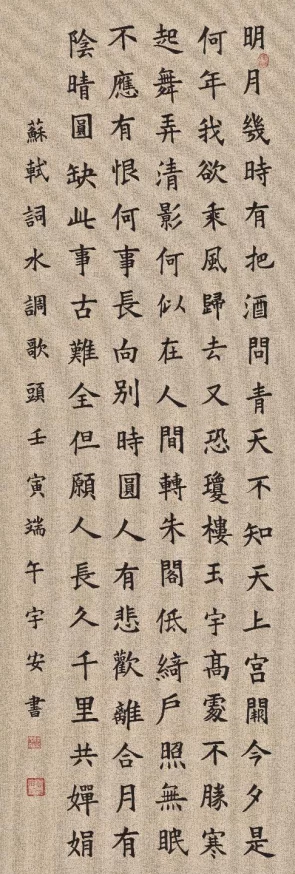 明月幾時有把酒問青天不知天上宮闕今夕是
何年我欲乘風歸去又恐瓊樓玉宇高處不勝寒
起舞弄清影何似在人間轉朱閣低綺戶照無眠
不應有恨何事長向別時圓人有悲歡離合月有
陰晴圓缺此事古難全但願人長久千里共嬋娟
蘇軾詞水調歌頭壬寅端午宇安書